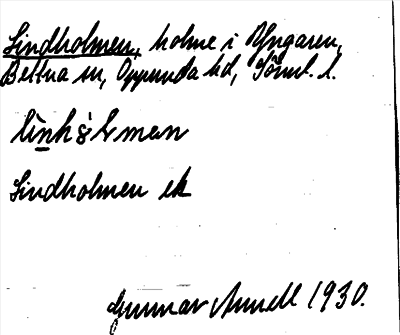 Lindholmen, holme i Yngaren,
Bettna sn, Oppunda hd, Söml. l.
Lindholmen ek
Gunnar Annell 1930.